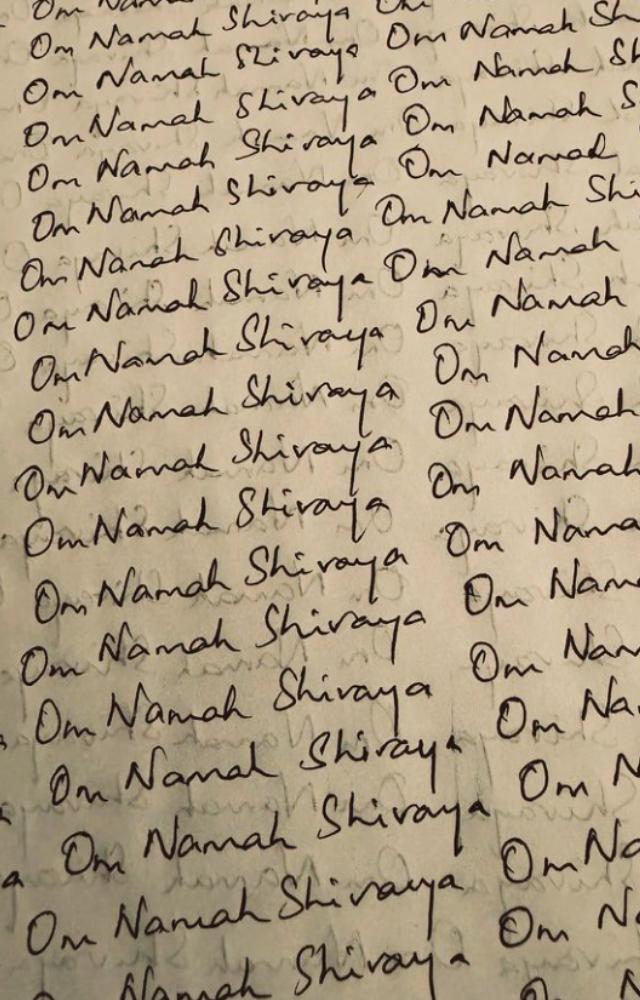 Om Namah
Om Namah Shivaya Om
Om Namah Shivaya Om Namah Sh
Om Namah Shivaya Om Namah Sh
Om Namah Shivaya Om Namah S
Om Namah Shivaya Om Namah
Om Namah Shivaya Om Namah Shi
Om Namah Shivaya Om Namah
Om Namah Shivaya Om Namah
Om Namah Shivaya Om Namah
Om Namah Shivaya Om Namah
Om Namah Shivaya Om Namah
Om Namah Shivaya Om Nama
Om Namah Shivaya Om Nam
Om Namah Shivaya Om Nam
Om Namah Shivaya Om Na
Om Namah Shivaya Om N
Om Namah Shivaya Om Na
Om Namah Shivaya Om N